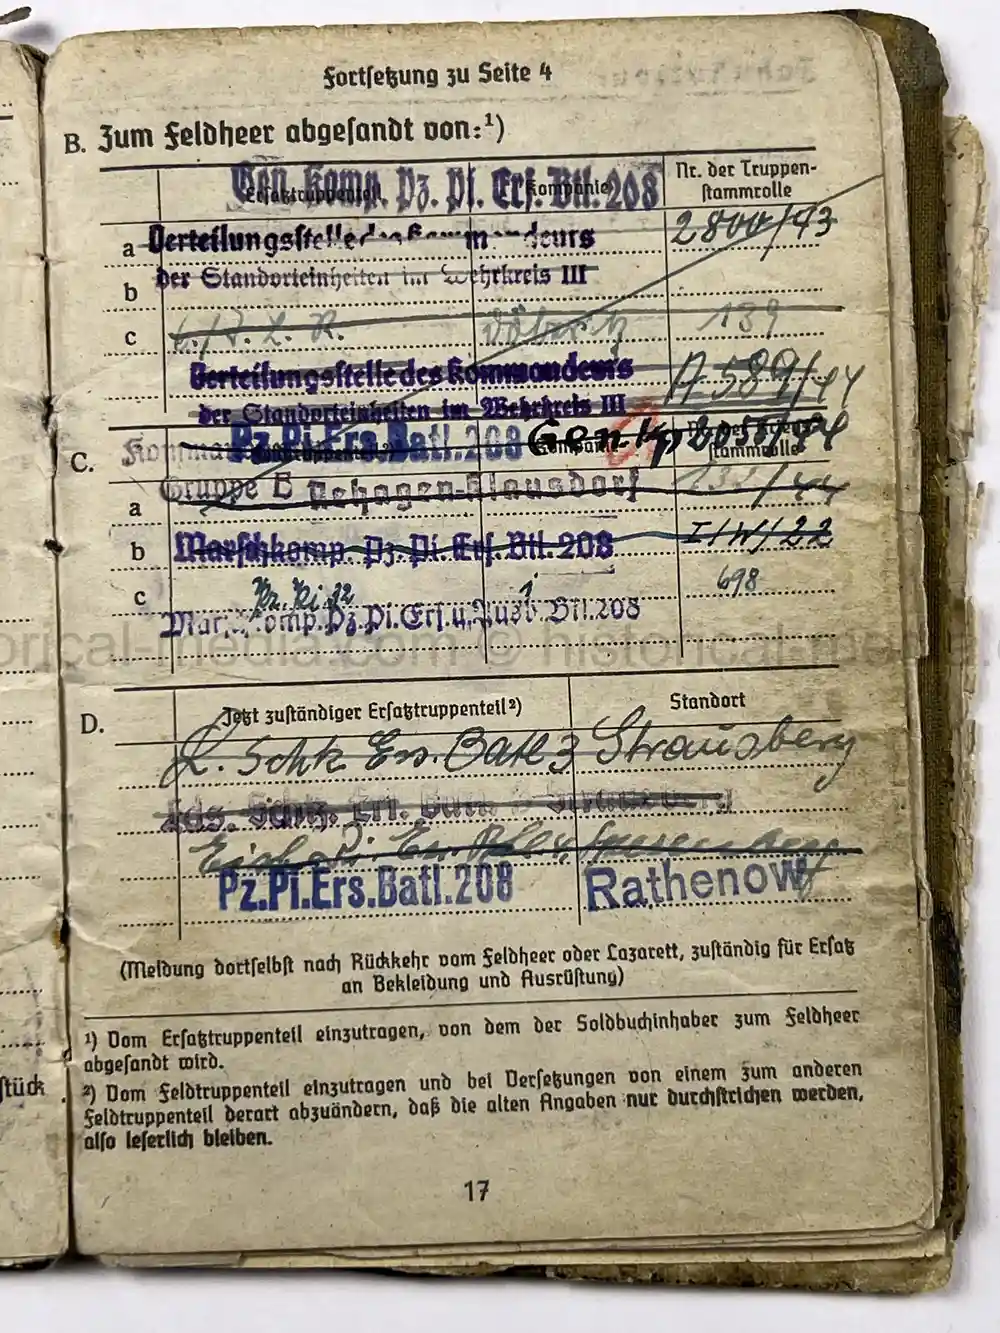 Fortsetzung zu Seite 4
B. Zum Feldheer abgesandt von:¹)
Gen. Komp. Pz. Pi. Ers. Btl. 208
Ersatztruppenteil Kompanie Nr. der Truppen-
stammrolle
a Verteilungsstelle des Kommandeurs 2800/43
der Standorteinheiten im Wehrkreis III
b
c 139
Verteilungsstelle des Kommandeurs A 589/44
der Standorteinheiten im Wehrkreis III
C. Pz.Pi.Ers.Batl.208 Gen. Kp 2055/44
Kompanie stammrolle
Gruppe E Rehagen-Klausdorf /44
a
b Marschkomp. Pz. Pi. Ers. Btl. 208 I/W/22
c 1 698
Marschkomp. Pz. Pi. Ers. u. Ausb. Btl. 208
historical-media.com © historical-media.c
D. Jetzt zuständiger Ersatztruppenteil²) Standort
L. Schtz. Ers. Batl 3 Strausberg
Lds. Schtz. Ers. Batl. 3 Strausberg
Pi. Ers. Spremberg
Pz.Pi.Ers.Batl.208 Rathenow
(Meldung dortselbst nach Rückkehr vom Feldheer oder Lazarett, zuständig für Ersatz
an Bekleidung und Ausrüstung)
¹) Vom Ersatztruppenteil einzutragen, von dem der Soldbuchinhaber zum Feldheer
abgesandt wird.
²) Vom Feldtruppenteil einzutragen und bei Versetzungen von einem zum anderen
Feldtruppenteil derart abzuändern, daß die alten Angaben nur durchstrichen werden,
also leserlich bleiben.
stück
17